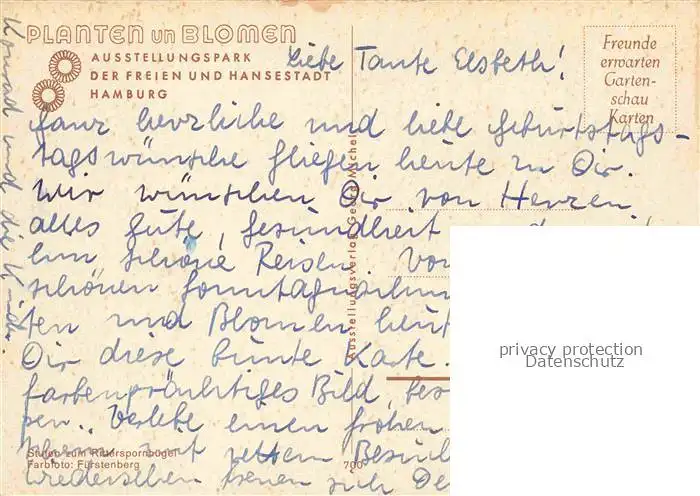 PLANTEN un BLOMEN
AUSSTELLUNGSPARK
DER FREIEN UND HANSESTADT
HAMBURG
Freunde
erwarten
Garten-
schau
Karten
Liebe Tante Elsbeth!
Ganz herzliche und liebe Geburtstags-
tagswünsche fliegen heute zu Dir.
Wir wünschen Dir von Herzen
alles Gute, Gesundheit
schöne Reisen. Vo
schönen Sonntag
ten und Blomen
Dir diese bunte Karte.
farbenprächtiges Bild, bes
Verlebe einen frohen
mit nettem Besuch
Wiedersehen freuen sich De
Konrad und die Kinder.
Stufen zum Ritterspornhügel
Farbfoto: Fürstenberg
700
Ausstellungsverlag Georg Michel
privacy protection
Datenschutz